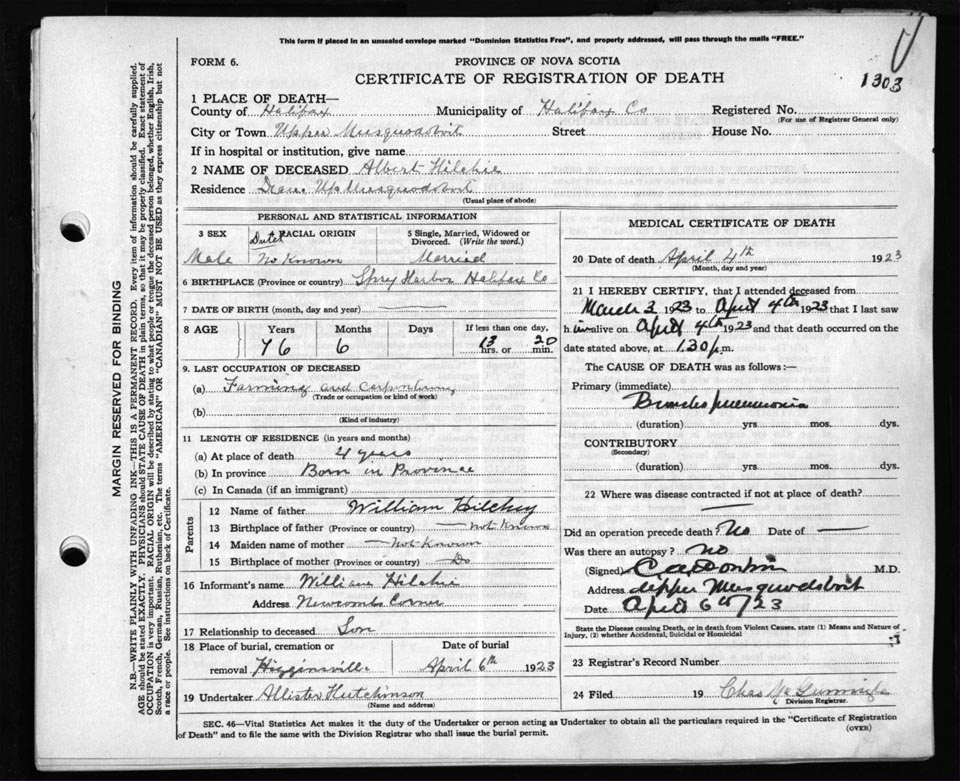 This form if placed in an unsealed envelope marked "Dominion Statistics Free", and properly addressed, will pass through the mails "FREE."
FORM 6.
PROVINCE OF NOVA SCOTIA
CERTIFICATE OF REGISTRATION OF DEATH
1303
1 PLACE OF DEATH—
County of Halifax Municipality of Halifax Co Registered No.
(For use of Registrar General only)
City or Town Upper Musquodoboit Street House No.
If in hospital or institution, give name
2 NAME OF DECEASED Albert Hilchie
Residence Dean Up Musquodoboit
(Usual place of abode)
PERSONAL AND STATISTICAL INFORMATION
3 SEX
Male
RACIAL ORIGIN
Dutch
No Known
5 Single, Married, Widowed or Divorced. (Write the word.)
Married
6 BIRTHPLACE (Province or country) Spry Harbor Halifax Co
7 DATE OF BIRTH (month, day and year)
8 AGE Years Months Days If less than one day,
76 6 13 hrs. or 20 min.
9. LAST OCCUPATION OF DECEASED
(a) Farming and Carpentering
(Trade or occupation or kind of work)
(b)
(Kind of industry)
11 LENGTH OF RESIDENCE (in years and months)
(a) At place of death 4 years
(b) In province Born in Province
(c) In Canada (if an immigrant)
Parents
12 Name of father William Hilchey
13 Birthplace of father (Province or country) — not Known
14 Maiden name of mother — Not Known
15 Birthplace of mother (Province or country) Do
16 Informant's name William Hilchie
Address Newcombs Corner
17 Relationship to deceased Son
18 Place of burial, cremation or removal Higginsville
Date of burial
April 6th 1923
19 Undertaker Allister Hutchinson
(Name and address)
MEDICAL CERTIFICATE OF DEATH
20 Date of death April 4th 1923
(Month, day and year)
21 I HEREBY CERTIFY, that I attended deceased from
March 3 1923 to April 4th 1923 that I last saw
him alive on April 4th 1923 and that death occurred on the
date stated above, at 1.30 p.m.
The CAUSE OF DEATH was as follows:—
Primary (immediate)
Broncho pneumonia
(duration) yrs. mos. dys.
CONTRIBUTORY
(Secondary)
(duration) yrs. mos. dys.
22 Where was disease contracted if not at place of death?
Did an operation precede death? No Date of —
Was there an autopsy? no
(Signed) M.D.
Address Upper Musquodoboit
Date April 6th/23
State the Disease causing Death, or in death from Violent Causes, state (1) Means and Nature of Injury, (2) whether Accidental, Suicidal or Homicidal
23 Registrar's Record Number
24 Filed 19 Chas
Division Registrar.
SEC. 46—Vital Statistics Act makes it the duty of the Undertaker or person acting as Undertaker to obtain all the particulars required in the "Certificate of Registration
of Death" and to file the same with the Division Registrar who shall issue the burial permit. (OVER)
MARGIN RESERVED FOR BINDING
N.B.—WRITE PLAINLY WITH UNFADING INK—THIS IS A PERMANENT RECORD. Every item of information should be carefully supplied.
AGE should be stated EXACTLY. PHYSICIANS should STATE CAUSE OF DEATH in plain terms, so that it may be properly classified. Exact statement of
OCCUPATION is very important. RACIAL ORIGIN will be described by stating to what people or tongue the deceased person belonged, whether English, Irish,
Scotch, French, German, Russian, Ruthenian, etc. The terms "AMERICAN" OR "CANADIAN" MUST NOT BE USED as they express citizenship but not
a race or people. See instructions on back of Certificate.